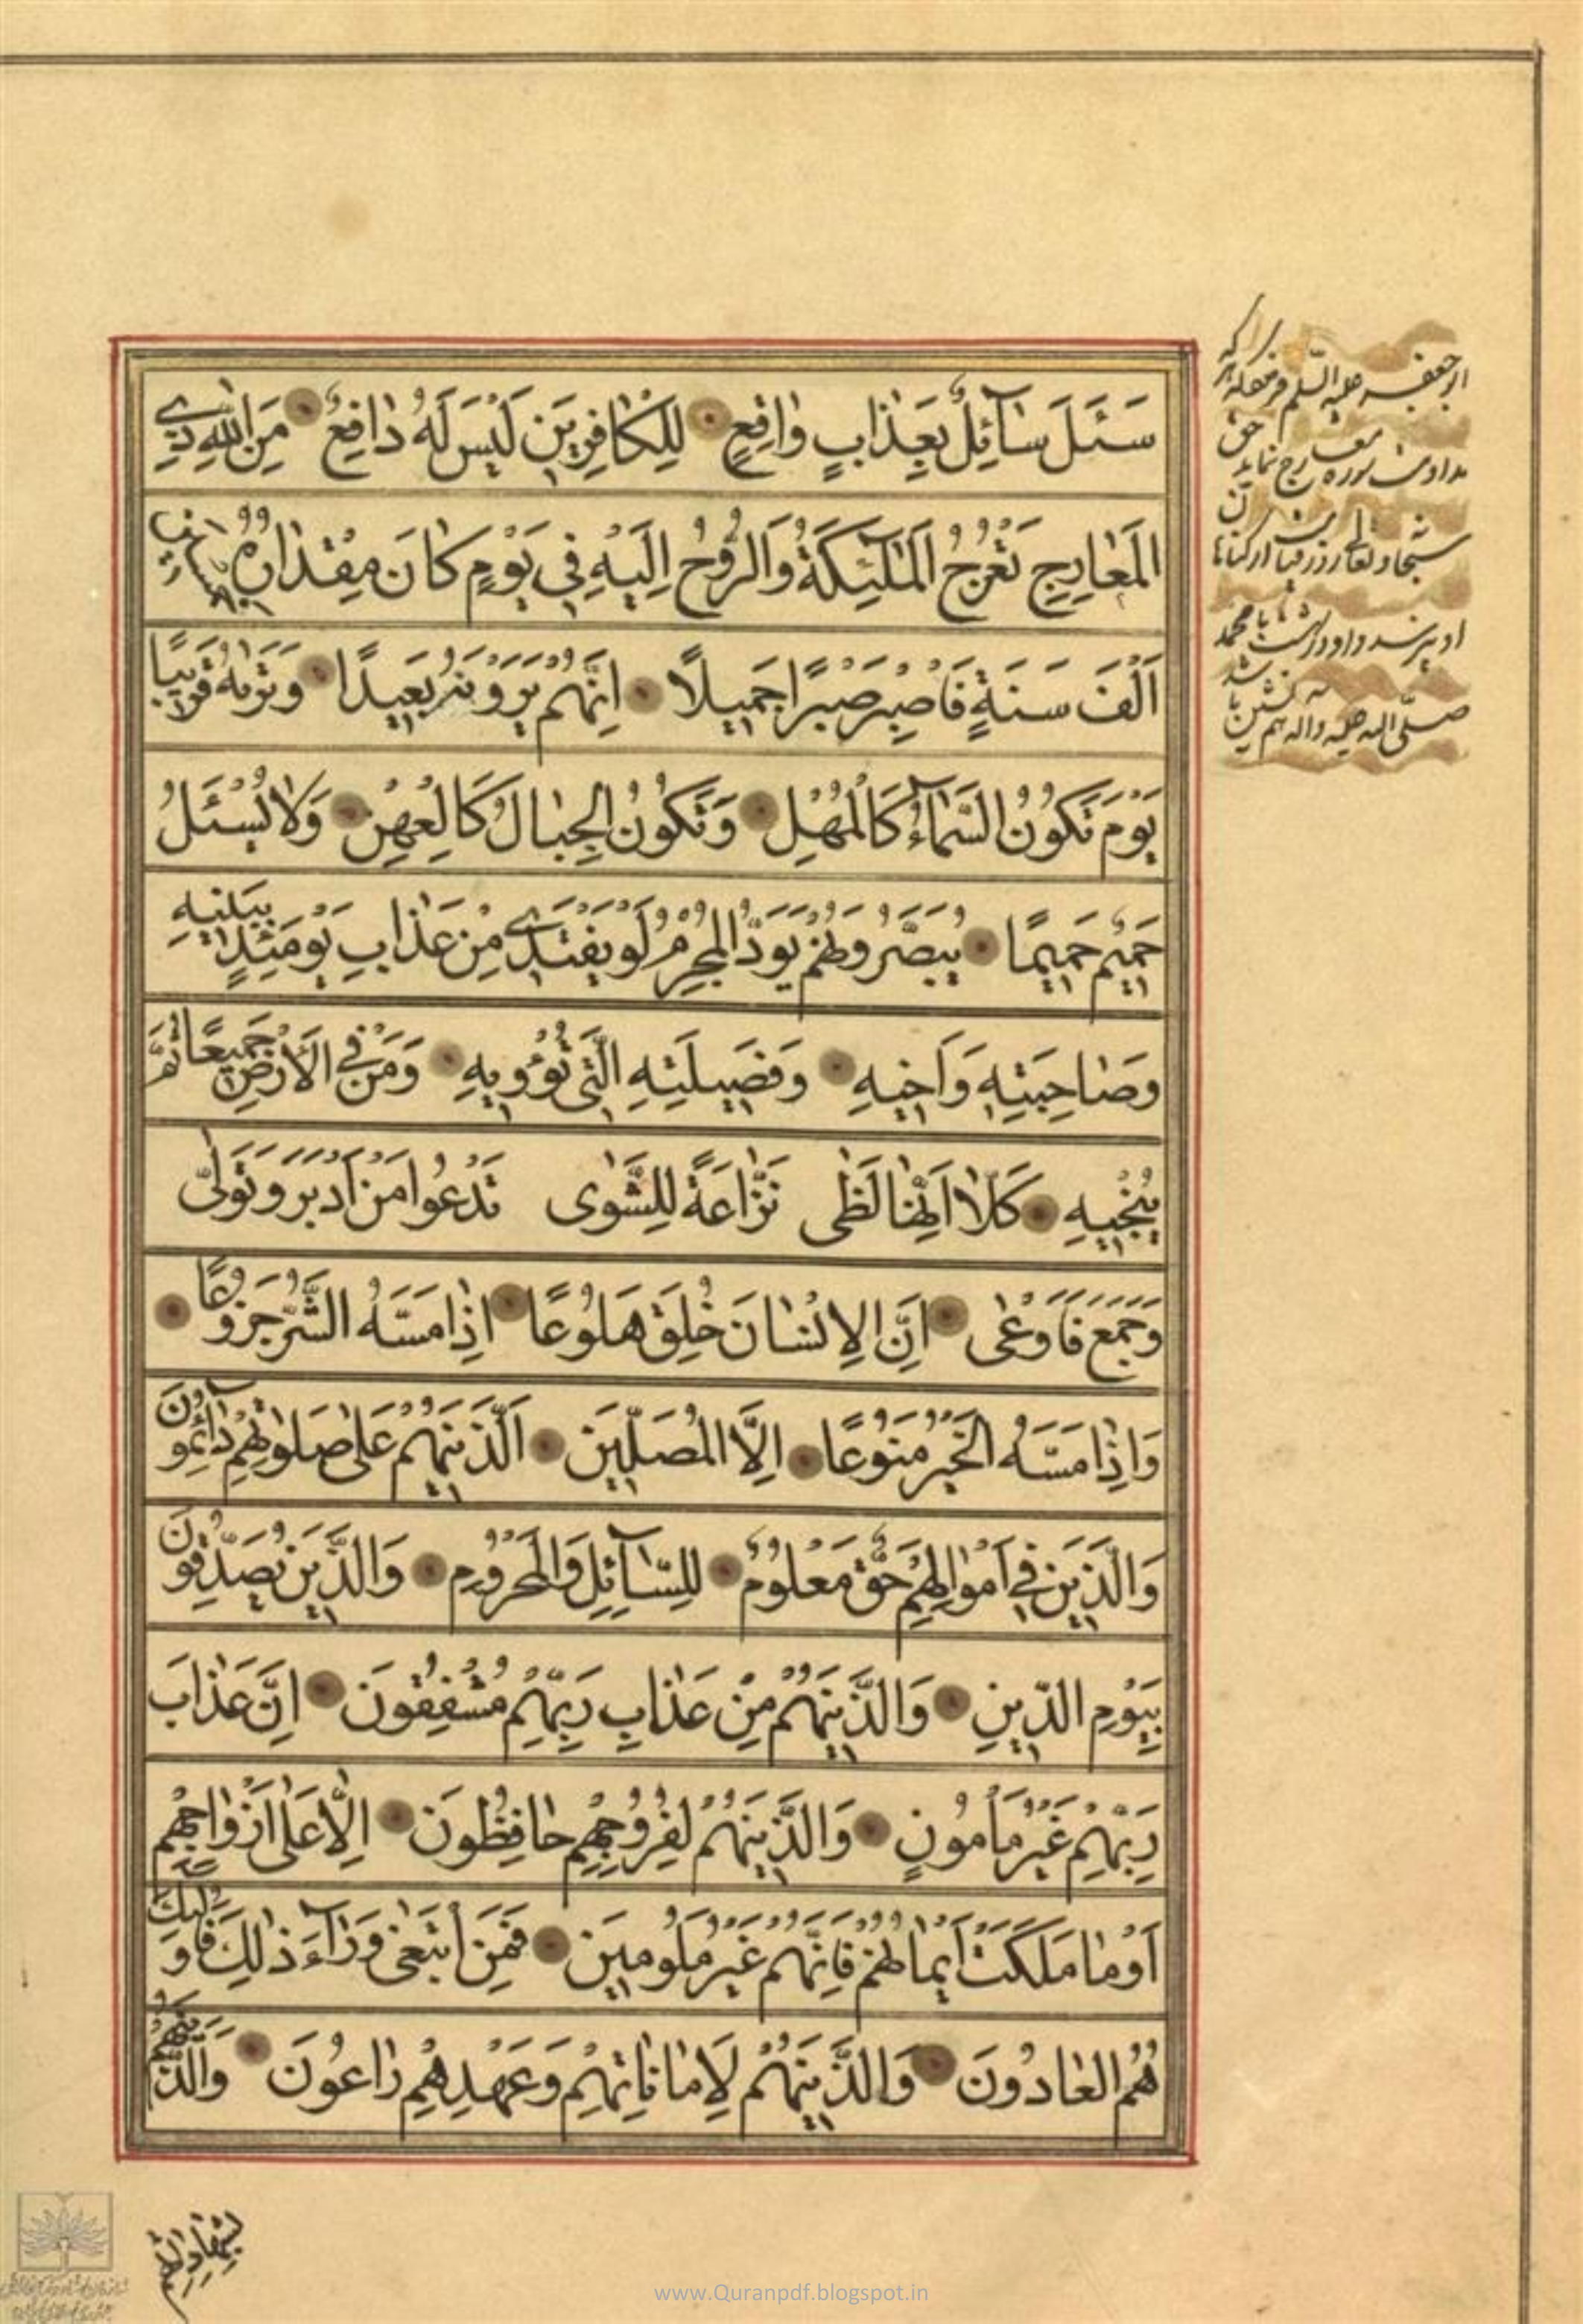 سَئَلَ سٰآئِلٌ بِعَذٰابٍ وٰاقِعٍ لِلْكٰافِرينَ لَيْسَ لَهُ دٰافِعٌ مِنَ اللهِ ذِي
الْمَعٰارِجِ تَعْرُجُ الْمَلٰٓئِكَةُ وَالرُّوحُ اِلَيْهِ في يَوْمٍ كٰانَ مِقْدٰارُهُ خَمْسينَ
اَلْفَ سَنَةٍ فَاصْبِرْ صَبْرًا جَميلًا اِنَّهُمْ يَرَوْنَهُ بَعيدًا وَنَرٰيهُ قَريبًا
يَوْمَ تَكُونُ السَّمٰآءُ كَالْمُهْلِ وَتَكُونُ الْجِبٰالُ كَالْعِهْنِ وَلٰا يُسْئَلُ
حَميمٌ حَميمًا يُبَصَّرُونَهُمْ يَوَدُّ الْمُجْرِمُ لَوْ يَفْتَدي مِنْ عَذٰابِ يَوْمَئِذٍ بِبَنيهِ
وَصٰاحِبَتِهِ وَاَخيهِ وَفَصيلَتِهِ الَّتي تُؤْويهِ وَمَنْ فِي الْاَرْضِ جَميعًا ثُمَّ
يُنْجيهِ كَلّٰا اِنَّهٰا لَظٰى نَزّٰاعَةً لِلشَّوٰى تَدْعُوا مَنْ اَدْبَرَ وَتَوَلّٰى
وَجَمَعَ فَاَوْعٰى اِنَّ الْاِنْسٰانَ خُلِقَ هَلُوعًا اِذٰا مَسَّهُ الشَّرُّ جَزُوعًا
وَاِذٰا مَسَّهُ الْخَيْرُ مَنُوعًا اِلَّا الْمُصَلّينَ اَلَّذينَ هُمْ عَلٰى صَلٰوتِهِمْ دٰآئِمُونَ
وَالَّذينَ في اَمْوٰالِهِمْ حَقٌّ مَعْلُومٌ لِلسّٰآئِلِ وَالْمَحْرُومِ وَالَّذينَ يُصَدِّقُونَ
بِيَوْمِ الدّينِ وَالَّذينَ هُمْ مِنْ عَذٰابِ رَبِّهِمْ مُشْفِقُونَ اِنَّ عَذٰابَ
رَبِّهِمْ غَيْرُ مَأْمُونٍ وَالَّذينَ هُمْ لِفُرُوجِهِمْ حٰافِظُونَ اِلّٰا عَلٰى اَزْوٰاجِهِمْ
اَوْ مٰا مَلَكَتْ اَيْمٰانُهُمْ فَاِنَّهُمْ غَيْرُ مَلُومينَ فَمَنِ ابْتَغٰى وَرٰآءَ ذٰلِكَ فَاُولٰٓئِكَ
هُمُ الْعٰادُونَ وَالَّذينَ هُمْ لِاَمٰانٰاتِهِمْ وَعَهْدِهِمْ رٰاعُونَ وَالَّذينَ هُمْ
از جعفر علیه السلم هر که
مداومت سوره معارج نماید حق
سبحانه و تعالی روز قیامت از گناهان
او نپرسد و او در بهشت با محمد
صلّی الله علیه واله هم نشین باشد
بِشَهٰادٰاتِهِمْ
www.Quranpdf.blogspot.in